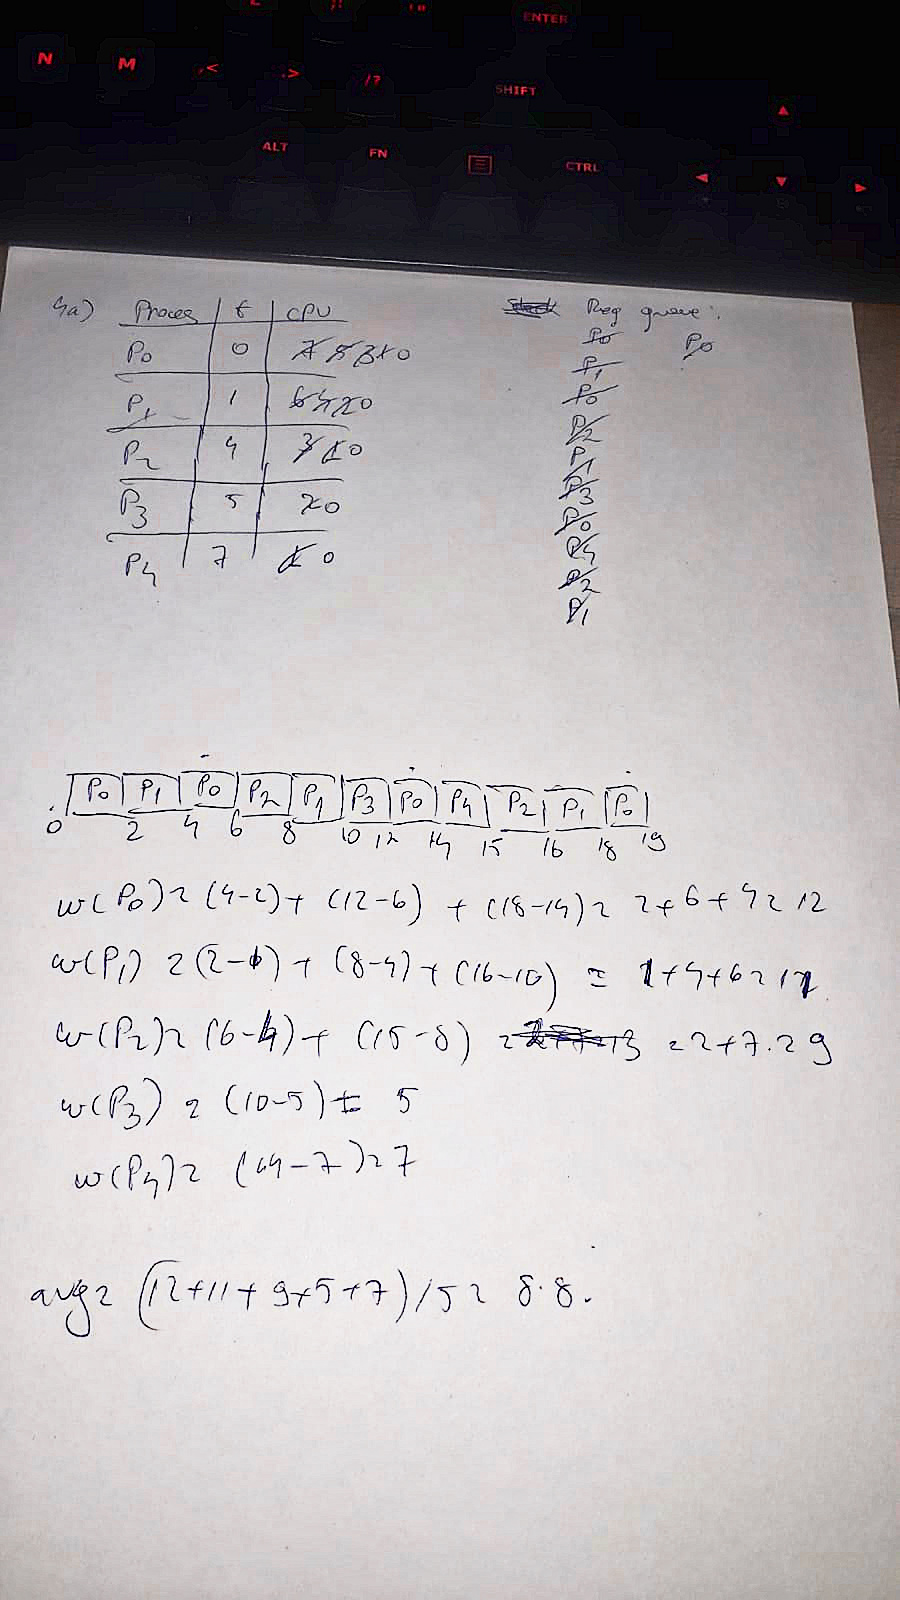 ENTER
N M ,< .> /? SHIFT
ALT FN CTRL
4a) Proces t CPU Req queue:
P0 0 7 5 3 1 0 P0 P0
P1 1 6 4 2 0 P1
P0
P2 4 3 1 0 P2
P1
P3 5 2 0 P3
P0
P4 7 1 0 P4
P2
P1
P0 P1 P0 P2 P1 P3 P0 P4 P2 P1 P0
0 2 4 6 8 10 12 14 15 16 18 19
w(P0) = (4-2) + (12-6) + (18-14) = 2+6+4 = 12
w(P1) = (2-1) + (8-4) + (16-10) = 1+4+6 = 11
w(P2) = (6-4) + (15-8) = 2+7 = 9
w(P3) = (10-5) = 5
w(P4) = (14-7) = 7
avg = (12+11+9+5+7)/5 = 8.8.